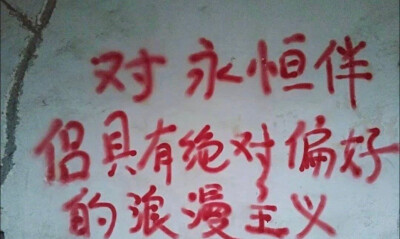 对永恒伴
侣具有绝对偏好
的浪漫主义